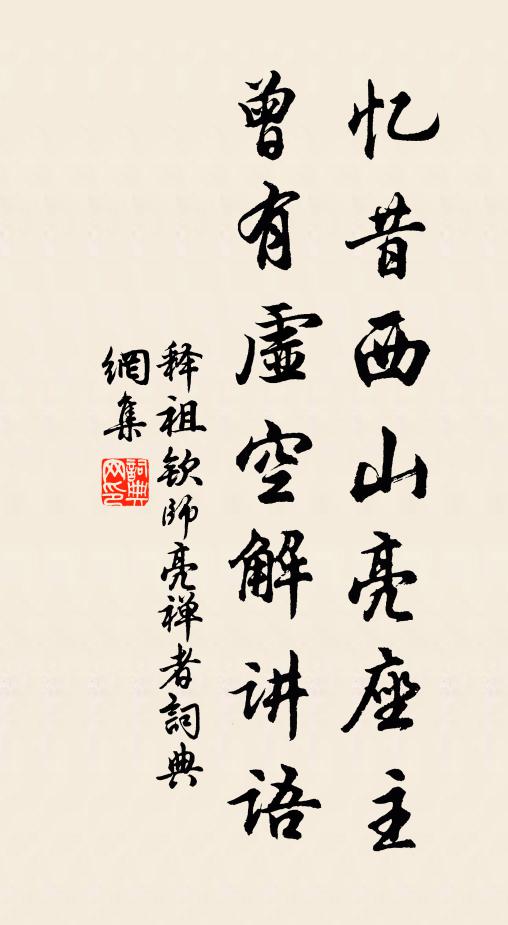 忆昔西山亮座主
曾有虚空解讲语
释祖钦师亮禅者詞典
網集
詞典
网印